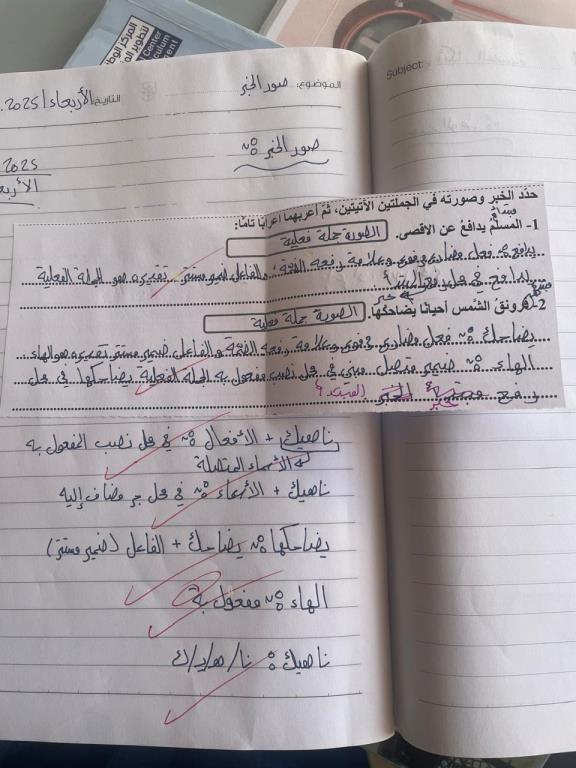 المركز الوطني
لتطوير
Center
Curriculum
Subject:
الموضوع: صور الخبر
التاريخ: الأربعاء/2025
صور الخبر:
2025
حدّد الخبر وصورته في الجملتين الآتيتين، ثمّ أعربهما إعرابًا تامًا:
1- المسلمُ يدافعُ عن الاقصى. الصورة جملة فعلية
يدافع: فعل مضارع مرفوع وعلامة رفعه الضمة، والفاعل ضمير مستتر تقديره هو الجملة الفعلية
يدافع في محل رفع خبر
2- رونقُ الشّمس أحيانًا يضاحكها. الصورة جملة فعلية
يضاحك: فعل مضارع مرفوع وعلامة رفعه الضمة والفاعل ضمير مستتر تقديره هو الهاء
الهاء: ضمير متصل مبني في محل نصب مفعول به الجملة الفعلية يضاحكها في محل
رفع خبر المبتدأ
ناهيك + الأفعال: في محل نصب المفعول به
الأسماء المتصلة
ناهيك + الأسماء: في محل جر مضاف إليه
يضاحكها: يضاحك + الفاعل (ضمير مستتر)
الهاء: مفعول به
ناهيك: نا/ها/ي/ك